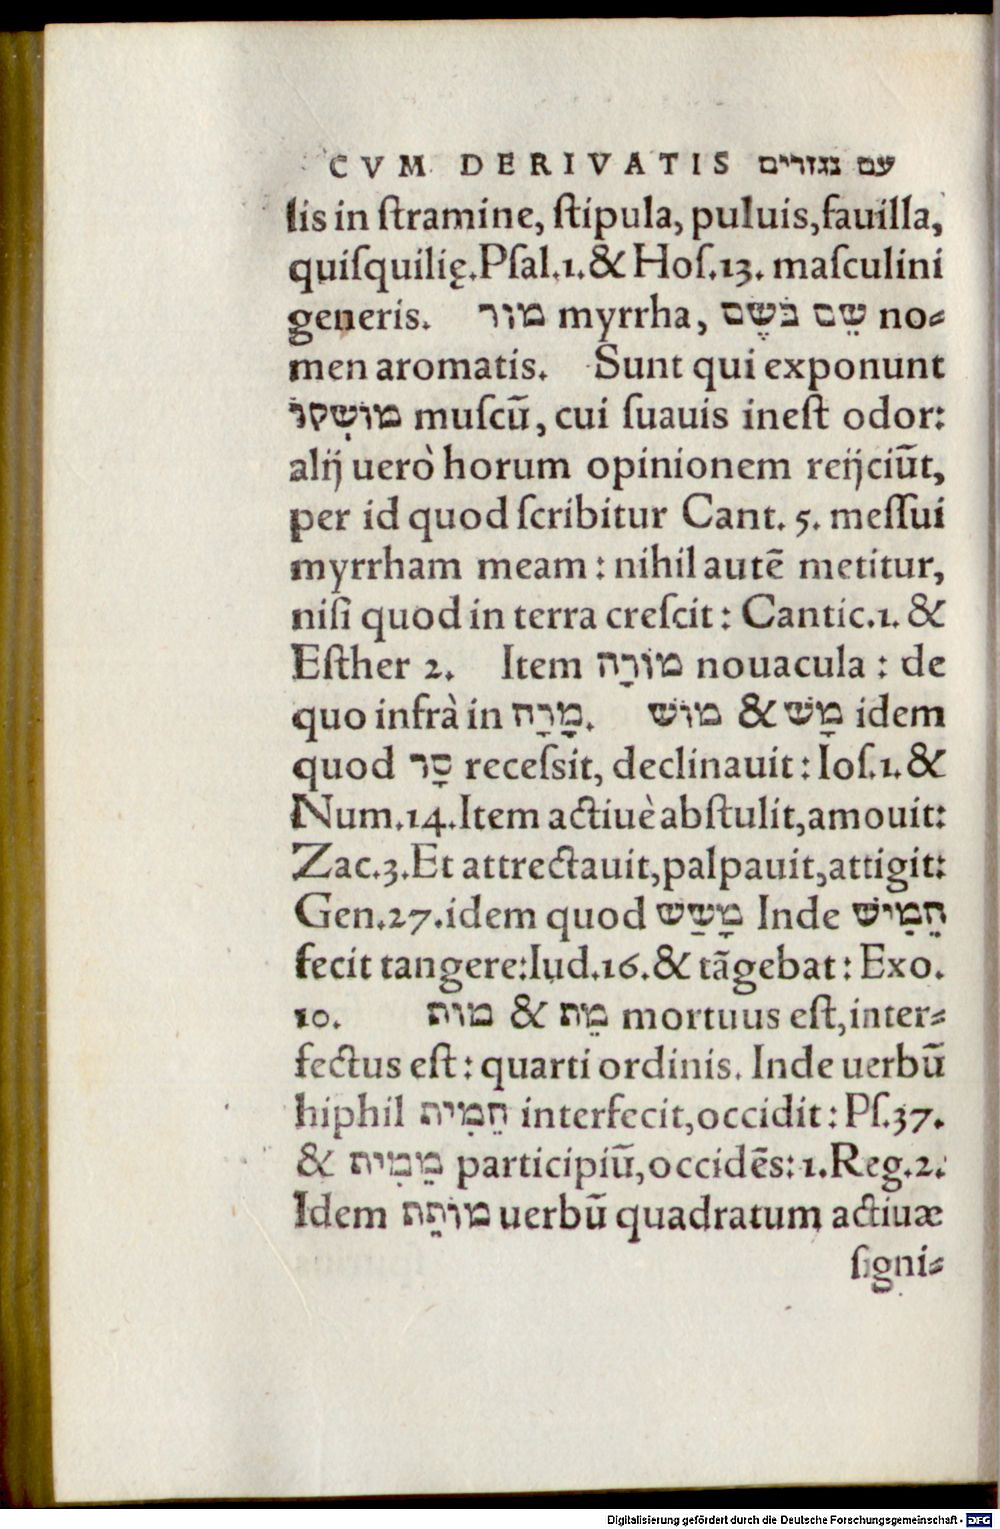 CVM DERIVATIS עם נגזרים
lis in ſtramine, ſtipula, puluis, fauilla,
quiſquilię. Pſal.1. & Hoſ.13. maſculini
generis. מור myrrha, שֵׁם בֹּשֶׂם no-
men aromatis. Sunt qui exponunt
מוּשְׁקוֹ muſcū, cui ſuauis ineſt odor:
alij uerò horum opinionem reijciūt,
per id quod ſcribitur Cant. 5. meſſui
myrrham meam: nihil autē metitur,
niſi quod in terra creſcit: Cantic.1. &
Eſther 2. Item מוֹרָה nouacula: de
quo infrà in מָרָה. מוּשׁ & מָשׁ idem
quod סָר receſsit, declinauit: Ioſ.1. &
Num.14. Item actiuè abſtulit, amouit:
Zac.3. Et attrectauit, palpauit, attigit:
Gen.27. idem quod מָשַׁשׁ Inde הֵמִישׁ
fecit tangere: Iud.16. & tāgebat: Exo.
10. מות & מֵת mortuus eſt, inter-
fectus eſt: quarti ordinis. Inde uerbū
hiphil הֵמִית interfecit, occidit: Pſ.37.
& מֵמִית participiū, occidēs: 1. Reg.2.
Idem מוֹתֵת uerbū quadratum actiuæ
ſigni-
Digitalisierung gefördert durch die Deutsche Forschungsgemeinschaft - DFG